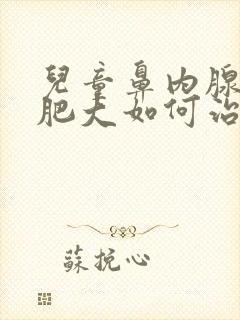 兒童鼻內腺
肥大如何治
蘇挽心